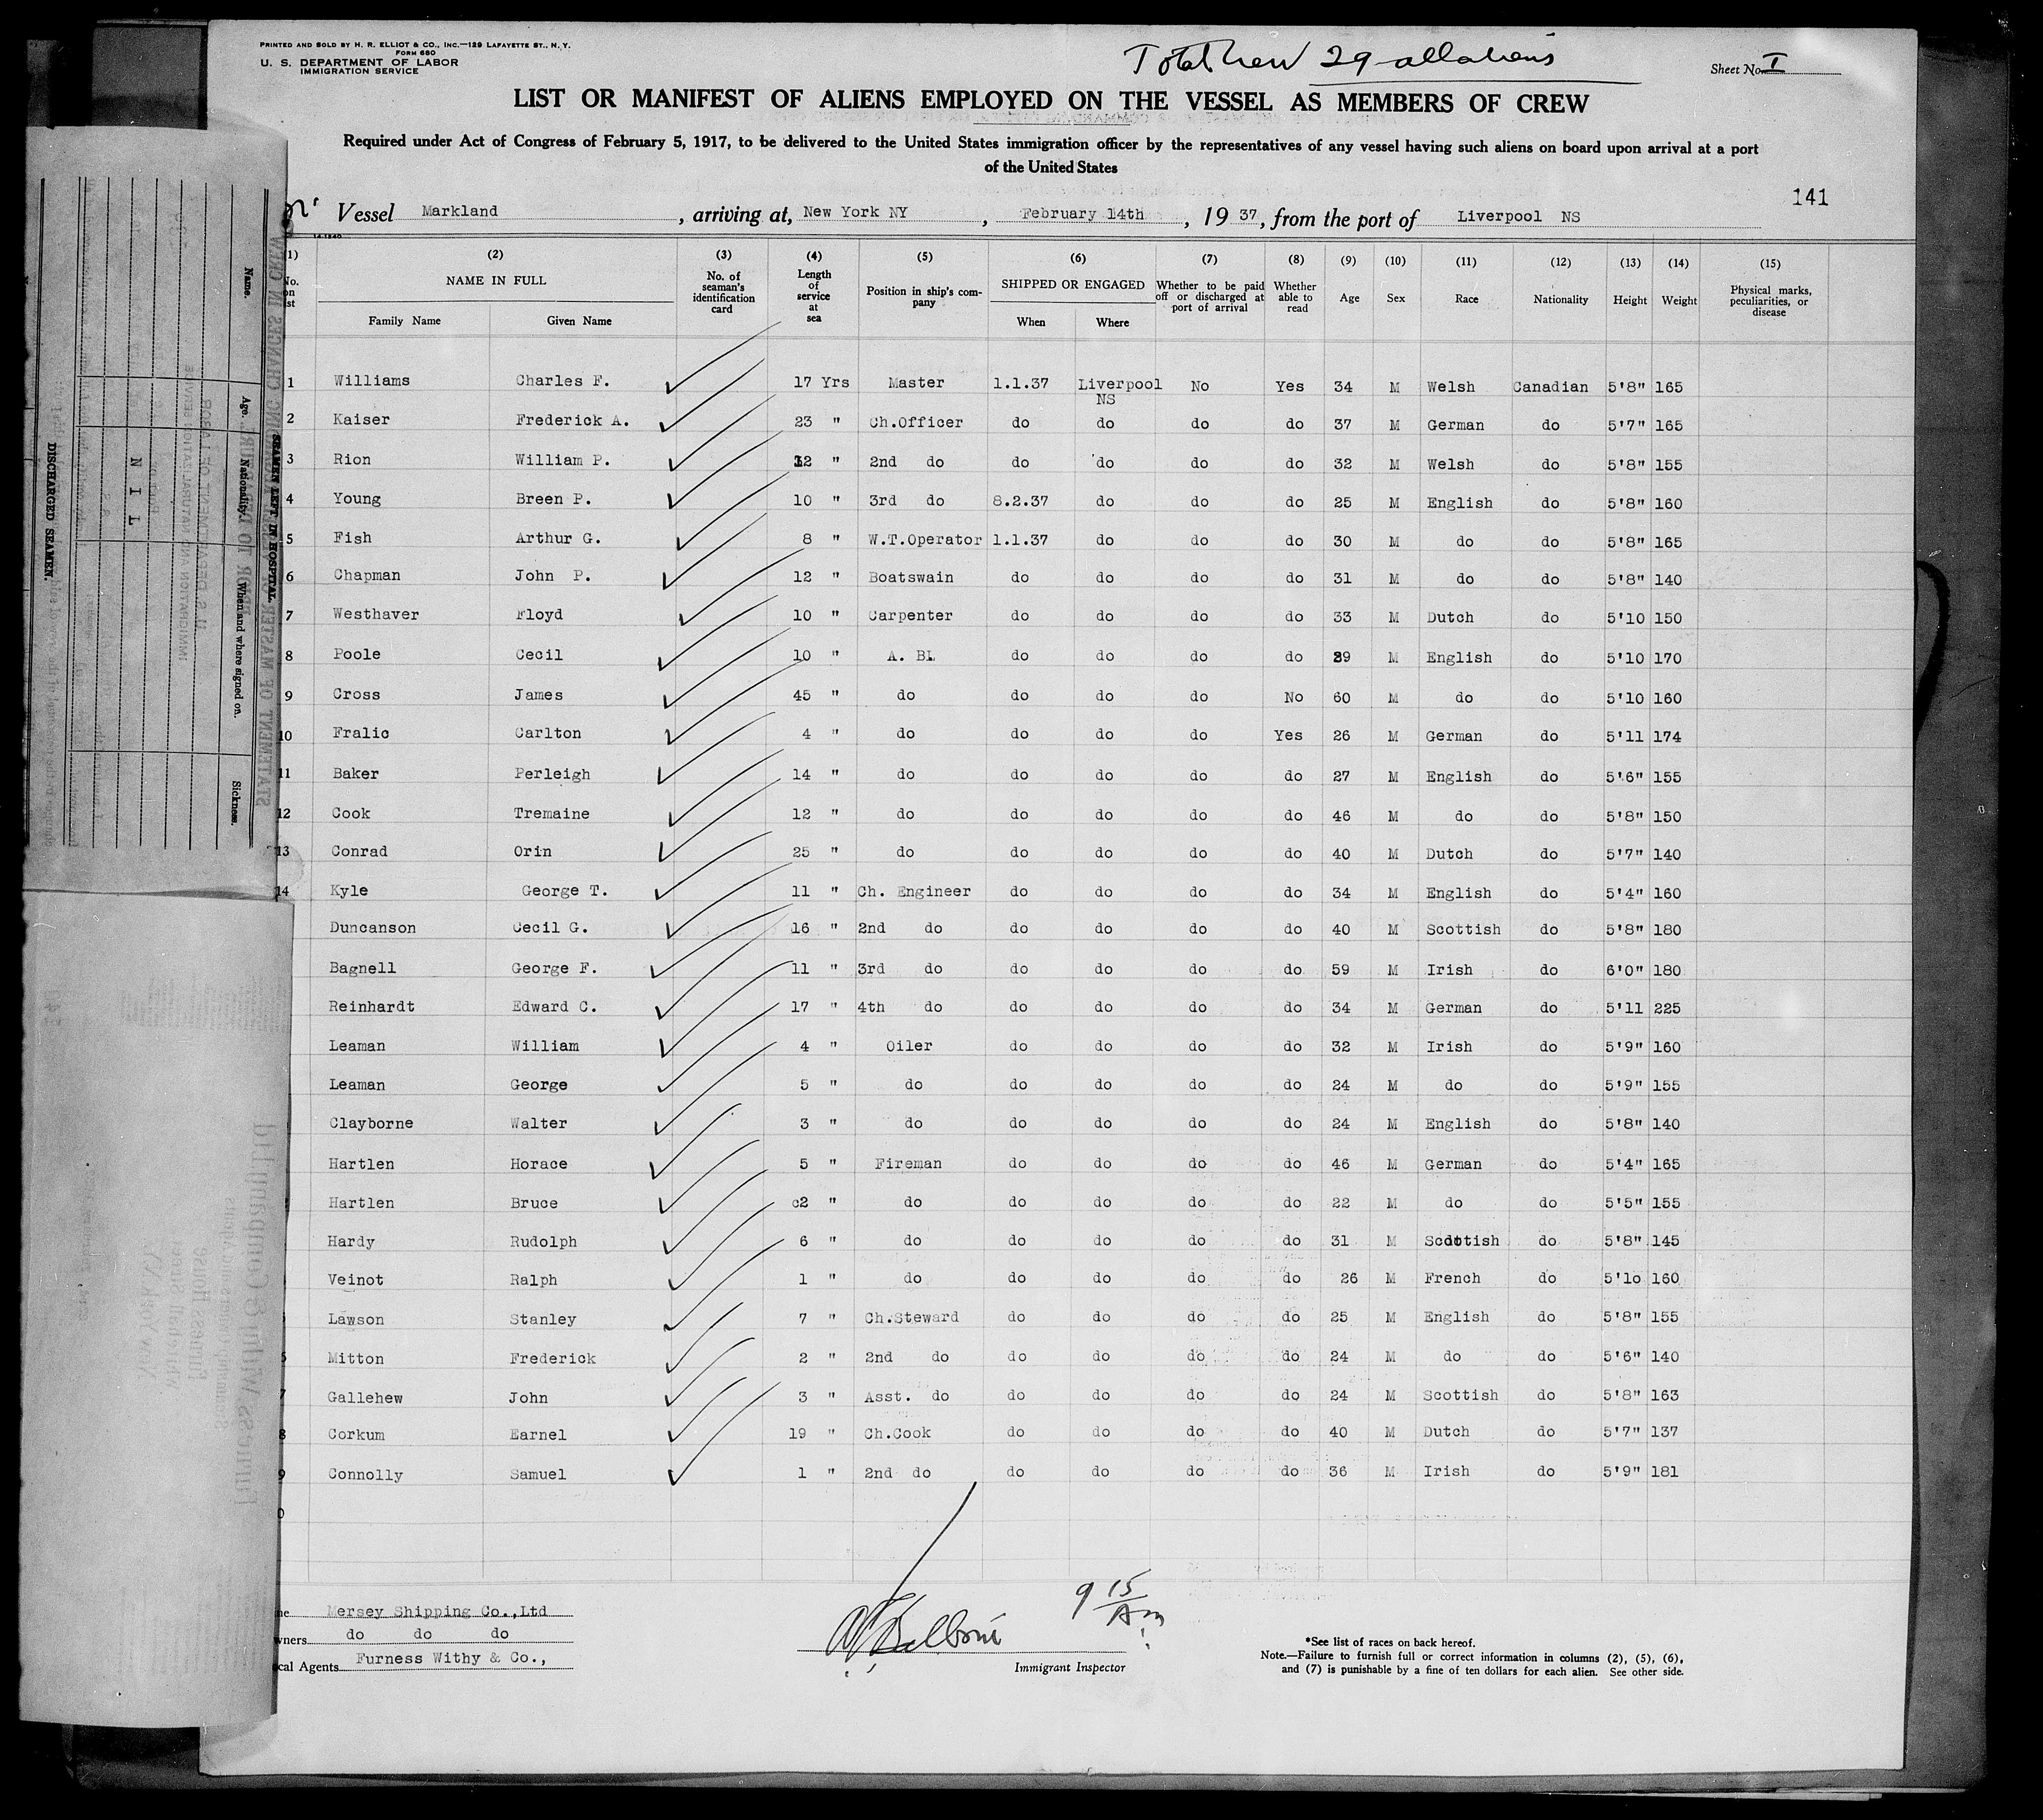 PRINTED AND SOLD BY H. R. ELLIOT & CO., INC.—129 LAFAYETTE ST., N. Y.
FORM 680
U. S. DEPARTMENT OF LABOR
IMMIGRATION SERVICE
Total Crew 29 all aliens
Sheet No. I
LIST OR MANIFEST OF ALIENS EMPLOYED ON THE VESSEL AS MEMBERS OF CREW
Required under Act of Congress of February 5, 1917, to be delivered to the United States immigration officer by the representatives of any vessel having such aliens on board upon arrival at a port
of the United States
141
Vessel Markland, arriving at, New York NY, February 14th, 19 37, from the port of Liverpool NS
(1) (2) (3) (4) (5) (6) (7) (8) (9) (10) (11) (12) (13) (14) (15)
NAME IN FULL No. of seaman's identification card Length of service at sea Position in ship's company SHIPPED OR ENGAGED Whether to be paid off or discharged at port of arrival Whether able to read Age Sex Race Nationality Height Weight Physical marks, peculiarities, or disease
Family Name Given Name When Where
1 Williams Charles F. 17 Yrs Master 1.1.37 Liverpool NS No Yes 34 M Welsh Canadian 5'8" 165
2 Kaiser Frederick A. 23 " Ch.Officer do do do do 37 M German do 5'7" 165
3 Rion William P. 12 " 2nd do do do do do 32 M Welsh do 5'8" 155
4 Young Breen P. 10 " 3rd do 8.2.37 do do do 25 M English do 5'8" 160
5 Fish Arthur G. 8 " W.T.Operator 1.1.37 do do do 30 M do do 5'8" 165
6 Chapman John P. 12 " Boatswain do do do do 31 M do do 5'8" 140
7 Westhaver Floyd 10 " Carpenter do do do do 33 M Dutch do 5'10 150
8 Poole Cecil 10 " A. BL do do do do 29 M English do 5'10 170
9 Cross James 45 " do do do do No 60 M do do 5'10 160
10 Fralic Carlton 4 " do do do do Yes 26 M German do 5'11 174
11 Baker Perleigh 14 " do do do do do 27 M English do 5'6" 155
12 Cook Tremaine 12 " do do do do do 46 M do do 5'8" 150
13 Conrad Orin 25 " do do do do do 40 M Dutch do 5'7" 140
14 Kyle George T. 11 " Ch. Engineer do do do do 34 M English do 5'4" 160
Duncanson Cecil G. 16 " 2nd do do do do do 40 M Scottish do 5'8" 180
Bagnell George F. 11 " 3rd do do do do do 59 M Irish do 6'0" 180
Reinhardt Edward C. 17 " 4th do do do do do 34 M German do 5'11 225
Leaman William 4 " Oiler do do do do 32 M Irish do 5'9" 160
Leaman George 5 " do do do do do 24 M do do 5'9" 155
Clayborne Walter 3 " do do do do do 24 M English do 5'8" 140
Hartlen Horace 5 " Fireman do do do do 46 M German do 5'4" 165
Hartlen Bruce c2 " do do do do do 22 M do do 5'5" 155
Hardy Rudolph 6 " do do do do do 31 M Scottish do 5'8" 145
Veinot Ralph 1 " do do do do do 26 M French do 5'1o 160
Lawson Stanley 7 " Ch.Steward do do do do 25 M English do 5'8" 155
Mitton Frederick 2 " 2nd do do do do do 24 M do do 5'6" 140
7 Gallehew John 3 " Asst. do do do do do 24 M Scottish do 5'8" 163
8 Corkum Earnel 19 " Ch.Cook do do do do 40 M Dutch do 5'7" 137
9 Connolly Samuel 1 " 2nd do do do do do 36 M Irish do 5'9" 181
0
Mersey Shipping Co.,Ltd
wners do do do
cal Agents Furness Withy & Co.,
9 15 Am
Immigrant Inspector
*See list of races on back hereof.
Note.—Failure to furnish full or correct information in columns (2), (5), (6),
and (7) is punishable by a fine of ten dollars for each alien. See other side.
DISCHARGED SEAMEN.
N I L
SEAMEN LEFT IN HOSPITAL.
Name. Age. Nationality. When and where signed on. Sickness.